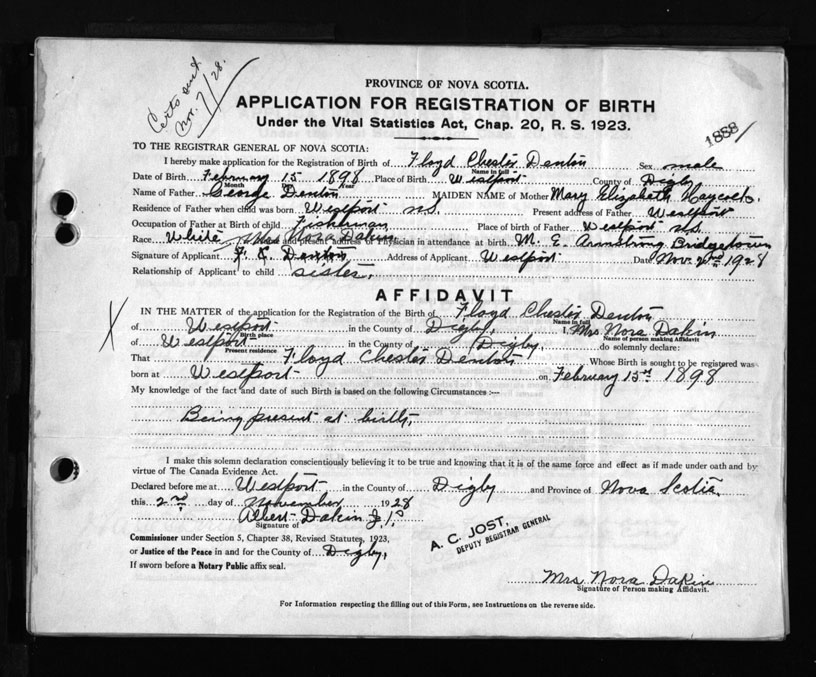 Certs sent
Nov. 7/28.
PROVINCE OF NOVA SCOTIA.
APPLICATION FOR REGISTRATION OF BIRTH
Under the Vital Statistics Act, Chap. 20, R. S. 1923.
1888/
TO THE REGISTRAR GENERAL OF NOVA SCOTIA:
I hereby make application for the Registration of Birth of Floyd Chester Denton Sex male
Name in full
Date of Birth February 15 1898 Place of Birth Westport County of Digby
Month Day Year
Name of Father George Denton MAIDEN NAME of Mother Mary Elizabeth Haycock
Residence of Father when child was born Westport N.S. Present address of Father Westport
Occupation of Father at Birth of child Fisherman Place of birth of Father Westport N.S.
Race White Name and present address of Physician in attendance at birth M. E. Armstrong Bridgetown
Mrs Nora Dakin
Signature of Applicant F. C. Denton Address of Applicant Westport Date Nov. 2nd 1928
Relationship of Applicant to child sister.
AFFIDAVIT
IN THE MATTER of the application for the Registration of the Birth of Floyd Chester Denton
Name in full
X
of Westport in the County of Digby, I, Mrs Nora Dakin
Birth place Name of person making Affidavit
of Westport in the County of Digby, do solemnly declare:
Present residence
That Floyd Chester Denton Whose Birth is sought to be registered was
born at Westport on February 15th 1898
My knowledge of the fact and date of such Birth is based on the following Circumstances :—
Being present at birth,
I make this solemn declaration conscientiously believing it to be true and knowing that it is of the same force and effect as if made under oath and by
virtue of The Canada Evidence Act.
Declared before me at Westport in the County of Digby and Province of Nova Scotia.
this 2nd day of November 1928
Albert Dakin J.P.
Signature of
A. C. JOST,
DEPUTY REGISTRAR GENERAL
Commissioner under Section 5, Chapter 38, Revised Statutes, 1923,
or Justice of the Peace in and for the County of Digby,
If sworn before a Notary Public affix seal.
Mrs Nora Dakin
Signature of Person making Affidavit.
For Information respecting the filling out of this Form, see Instructions on the reverse side.